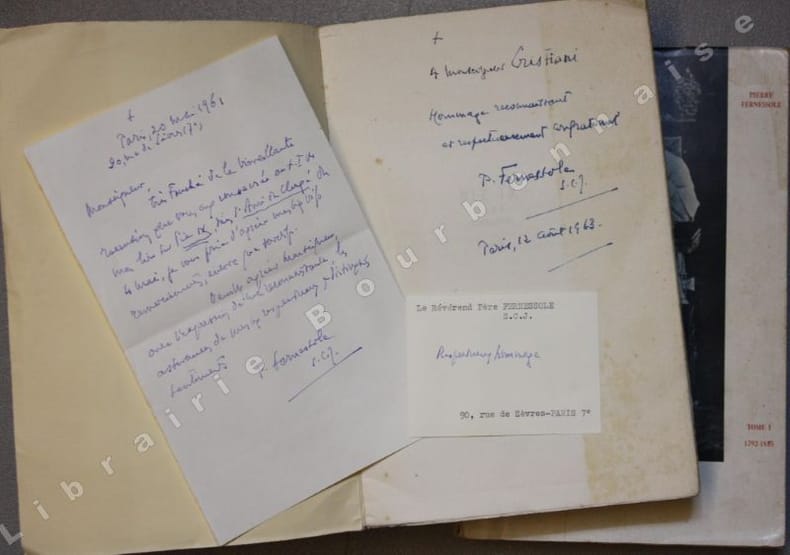 +
Paris, 20 mai 1961
Monseigneur,
Très touché de la bienveillante
recension que vous avez consacrée au t. I de
mon livre sur Pie IX, dans l'Ami du Clergé du
4 mai, je vous prie d'agréer mes
remerciements,
Veuillez agréer, Monseigneur,
avec l'expression de ma reconnaissance, les
assurances de mes respectueux &
sentiments
P. Fernessole
s.c.j.
+
A Monseigneur Cristiani
Hommage reconnaissant
et respectueusement confraternel
P. Fernessole
s.c.j.
Paris, 12 août 1963.
Le Révérend Père FERNESSOLE
S.C.J.
Respectueux hommage
90, rue de Sèvres-PARIS 7e
PIERRE
FERNESSOLE
TOME I
1792-1855
Librairie Bourbonnaise